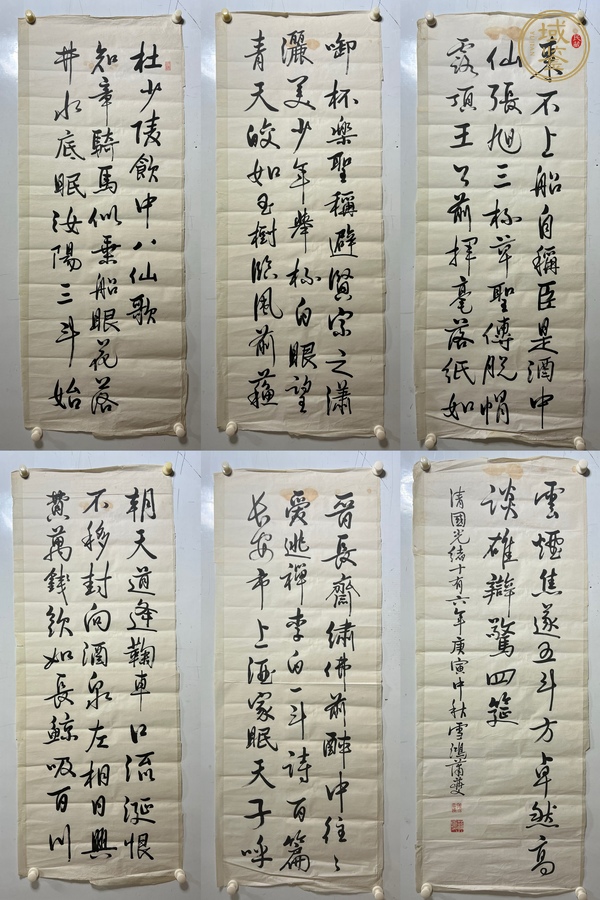 杜少陵飲中八仙歌
知章騎馬似乘船眼花落
井水底眠汝陽三斗始
朝天道逢鞠車口流涎恨
不移封向酒泉左相日興
費萬錢飲如長鯨吸百川
啣杯樂聖稱避賢宗之瀟
灑美少年舉杯白眼望
青天皎如玉樹臨風前蘇
晉長齋繡佛前醉中往〻
愛逃禪李白一斗詩百篇
長安市上酒家眠天子呼
來不上船自稱臣是酒中
仙張旭三杯草聖傳脫帽
露頂王公前揮毫落紙如
雲煙焦遂五斗方卓然高
談雄辯驚四筵
清國光緒十有六年庚寅中秋雪鴻蕭